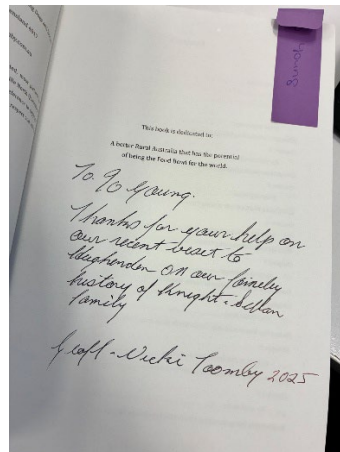 This book is dedicated to:
A better Rural Australia that has the potential
of being the Food Bowl for the world.
To. Jo Young.
Thanks for your help on
our recent visit to
Hughenden on our family
history of Knight -
family
Geoff - Vicki Toomby 2025